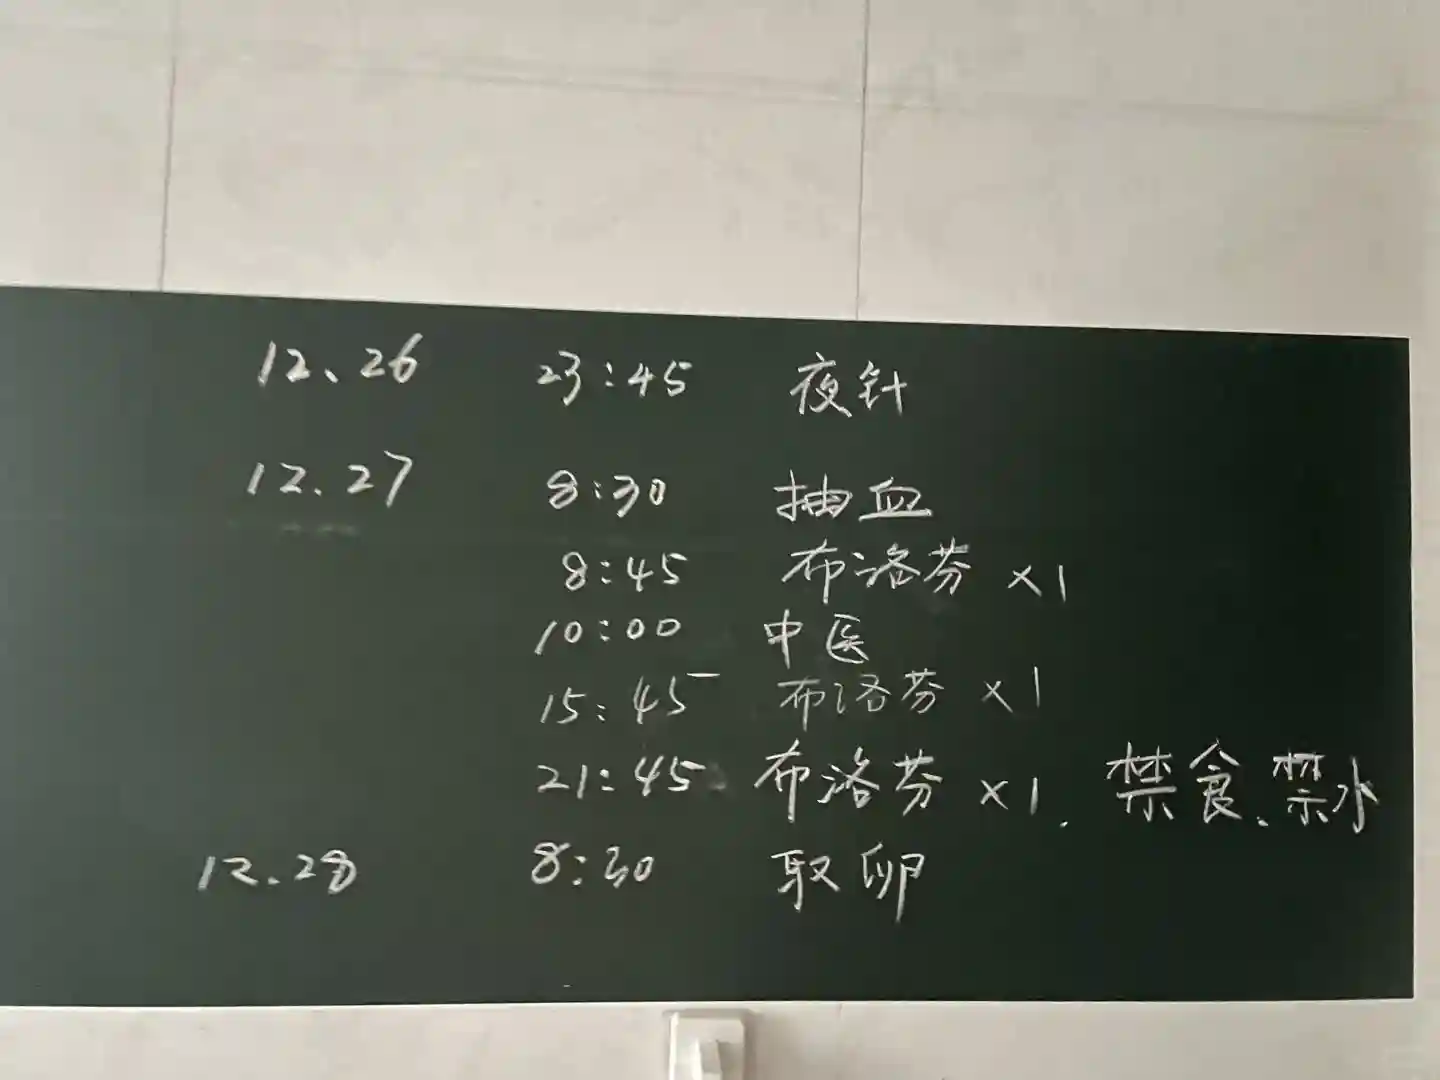 12.26 23:45 夜针
12.27 8:30 抽血
8:45 布洛芬 ×1
10:00 中医
15:45 布洛芬 ×1
21:45 布洛芬 ×1. 禁食、禁水
12.28 8:30 取卵